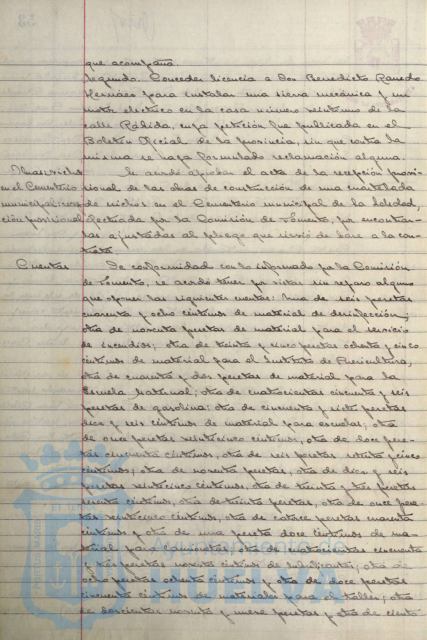 que acompaña
Segundo. Conceder licencia a Don Benedicto
para instalar una sierra mecánica y un
motor eléctrico en la casa número veintiuno de la
calle Rábida, cuya petición fue publicada en el
Boletín Oficial de la provincia, sin que contra la
misma se haya formulado reclamación alguna.
Nuevos nichos Se acordó aprobar el acta de la recepción provi-
en el Cementerio sional de las obras de construcción de una cuartelada
municipal: recep de nichos en el Cementerio municipal de la Soledad,
ción provisional efectuada por la Comisión de Fomento, por encontrar-
las ajustadas al pliego que sirvió de base a la con-
trata.
Cuentas De conformidad con lo informado por la Comisión
de Fomento, se acordó tener por vistas sin reparo alguno
que oponer las siguientes cuentas: Una de seis pesetas
cuarenta y ocho céntimos de material de desinfección;
otra de noventa pesetas de material para el servicio
de incendios; otra de treinta y cinco pesetas ochenta y cinco
céntimos de material para el Instituto de Puericultura,
otra de cuarenta y dos pesetas de material para la
Escuela Maternal; otra de cuatrocientas cincuenta y seis
pesetas de gasolina; otra de cincuenta y siete pesetas
diez y seis céntimos de material para escuelas; otra
de once pesetas veinticinco céntimos, otra de doce pese-
tas cincuenta céntimos, otra de seis pesetas setenta y cinco
céntimos; otra de noventa pesetas, otra de diez y seis
pesetas veinticinco céntimos, otra de treinta y tres pesetas
céntimos, otra de treinta pesetas, otra de once pese-
tas veinticinco céntimos, otra de catorce pesetas cuarenta
céntimos y otra de una peseta doce céntimos de ma-
terial para camionetas, otra de cuatrocientas cincuenta
y tres pesetas noventa céntimos de lubrificantes; otra de
ocho pesetas ochenta céntimos y otra de doce pesetas
cincuenta céntimos de materiales para el taller; otra
de doscientas noventa y nueve pesetas y otra de ciento